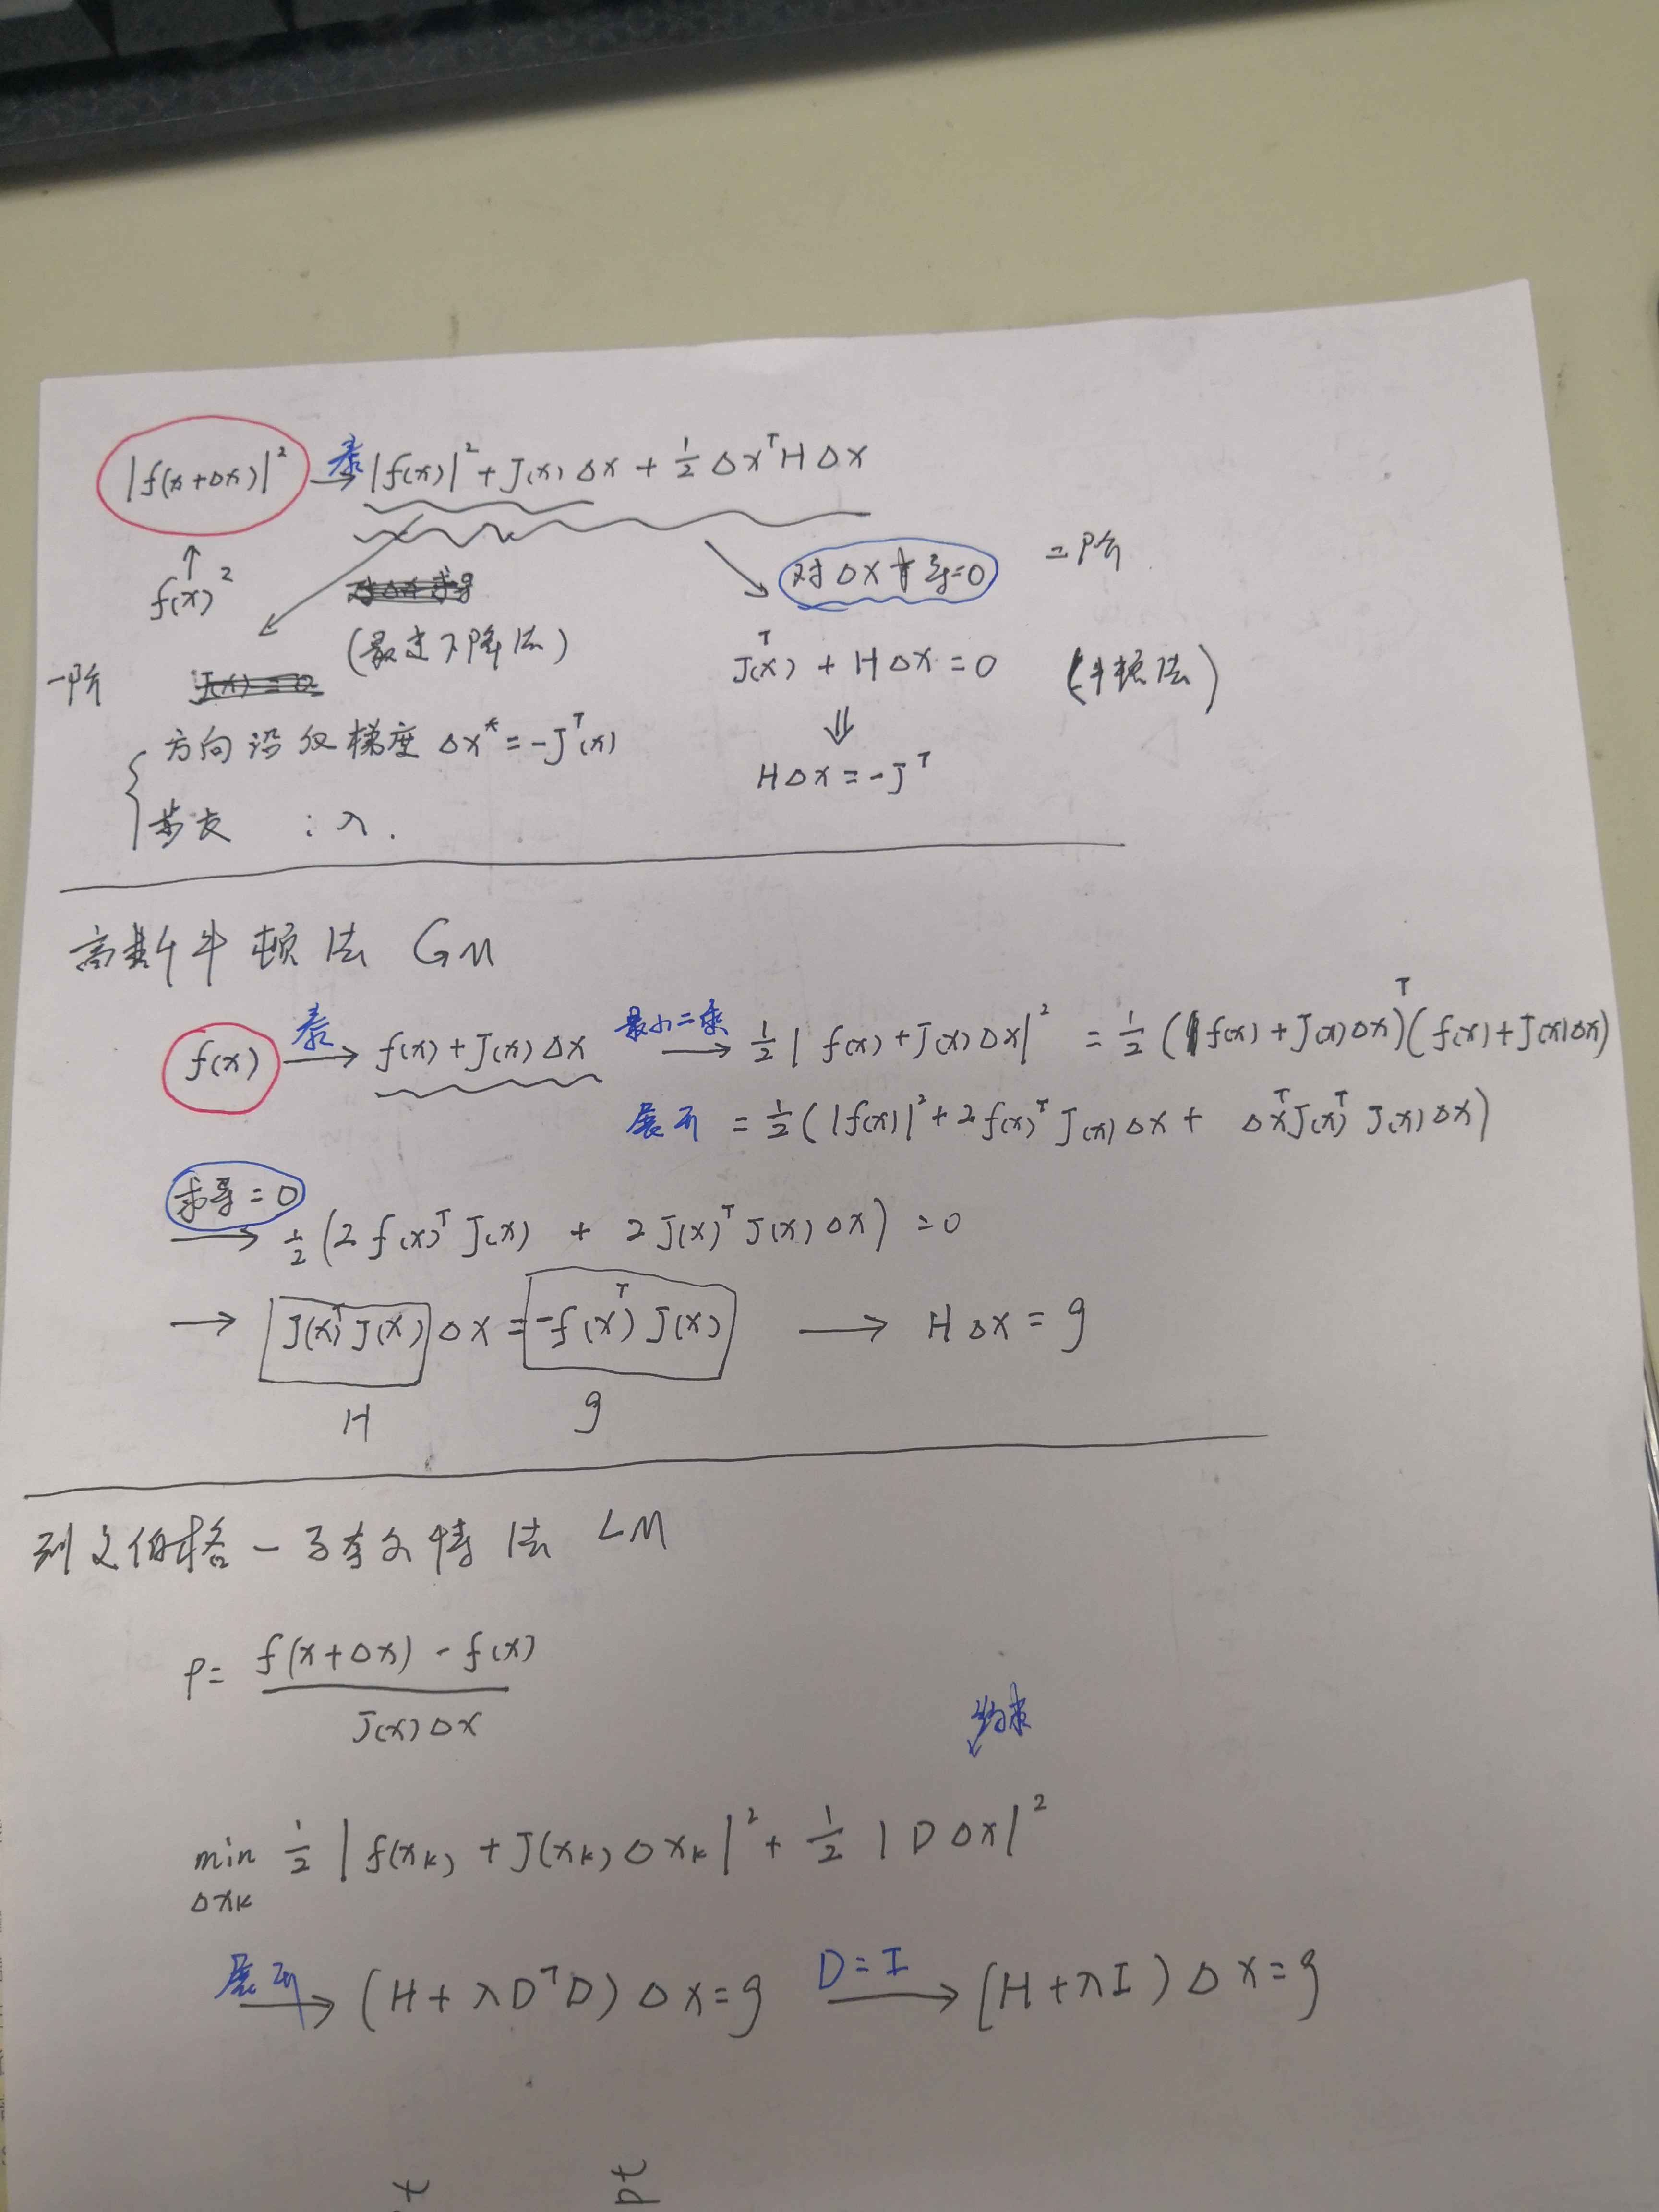 |f(x+Δx)|² 泰→ |f(x)|² + J(x)Δx + ½ Δxᵀ H Δx
↑
f(x)²
对Δx求导=0 二阶
(最速下降法)
J(x)ᵀ + HΔx = 0 (牛顿法)
一阶
⇓
方向沿 梯度 Δx* = -Jᵀ(x)
HΔx = -Jᵀ
步长 : λ.
高斯牛顿法 GN
f(x) 泰→ f(x) + J(x)Δx 最小二乘→ ½|f(x) + J(x)Δx|² = ½(f(x) + J(x)Δx)ᵀ(f(x) + J(x)Δx)
展开 = ½(|f(x)|² + 2f(x)ᵀJ(x)Δx + ΔxᵀJ(x)ᵀJ(x)Δx)
求导=0
→ ½(2f(x)ᵀJ(x) + 2J(x)ᵀJ(x)Δx) = 0
→ J(x)ᵀJ(x) Δx = -f(x)ᵀJ(x) → HΔx = g
H g
列文伯格-马夸尔特法 LM
ρ = f(x+Δx) - f(x)
J(x)Δx
约束
min ½|f(xₖ) + J(xₖ)Δxₖ|² + ½|DΔx|²
Δxₖ
展开→ (H + λDᵀD)Δx = g D=I→ (H + λI)Δx = g
pt